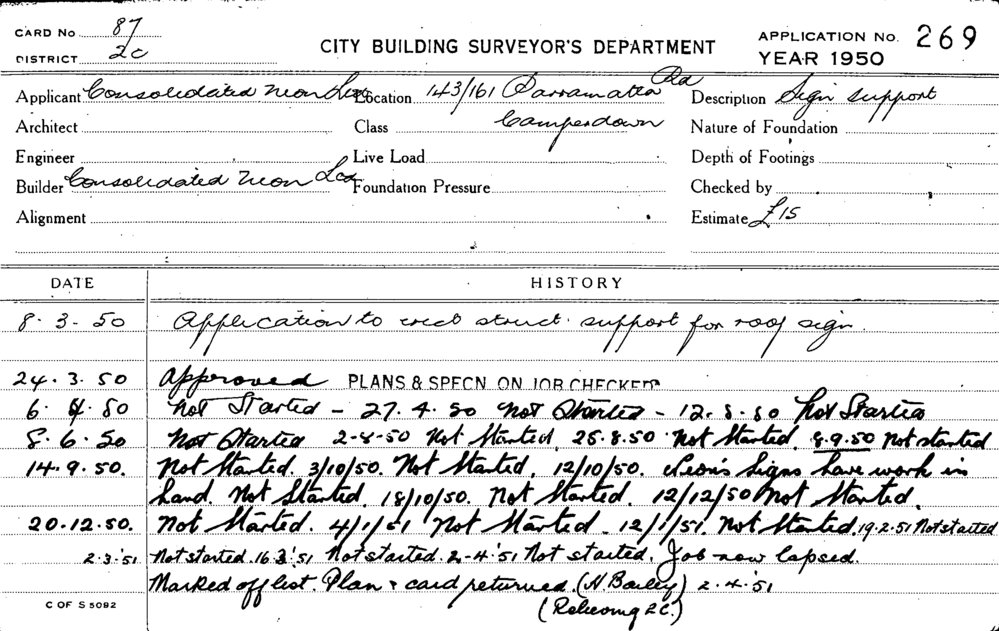 CARD No 87
DISTRICT 2c
CITY BUILDING SURVEYOR'S DEPARTMENT
APPLICATION No. 269
YEAR 1950
Applicant Consolidated Neon Location 143/161 Parramatta Rd Description Sign support
Architect Class Camperdown Nature of Foundation
Engineer Live Load Depth of Footings
Builder Consolidated Neon Ltd Foundation Pressure Checked by
Alignment Estimate £15
DATE HISTORY
8.3.50 Application to erect struct. support for roof sign.
24.3.50 Approved PLANS & SPECN ON JOB CHECKED
6.4.50 Not Started - 27.4.50 Not Started - 12.5.50 Not Started
8.6.50 Not Started 2-8-50 Not Started 25.8.50 Not Started. 8.9.50 Not started
14.9.50. Not Started. 3/10/50. Not Started. 12/10/50. Neon Signs have work in
hand. Not Started. 18/10/50. Not Started. 12/12/50 Not Started.
20.12.50. Not Started. 4/1/51 Not Started. 12/1/51. Not Started. 19.2.51 Not started
2.3.'51 Not started. 16.3.'51 Not started. 2-4.'51 Not started. Job now lapsed.
Marked off list. Plan & card returned. (H. Bailey) 2.4.'51
(Relieving 2C.)
C OF S 5092